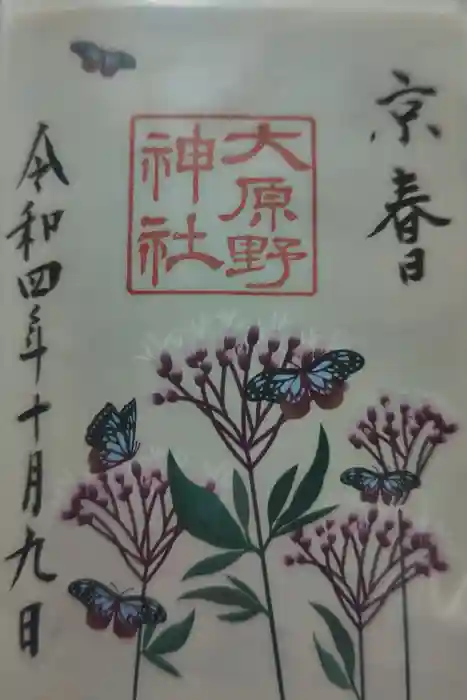 京春日
大原野
神社
令和四年十月九日